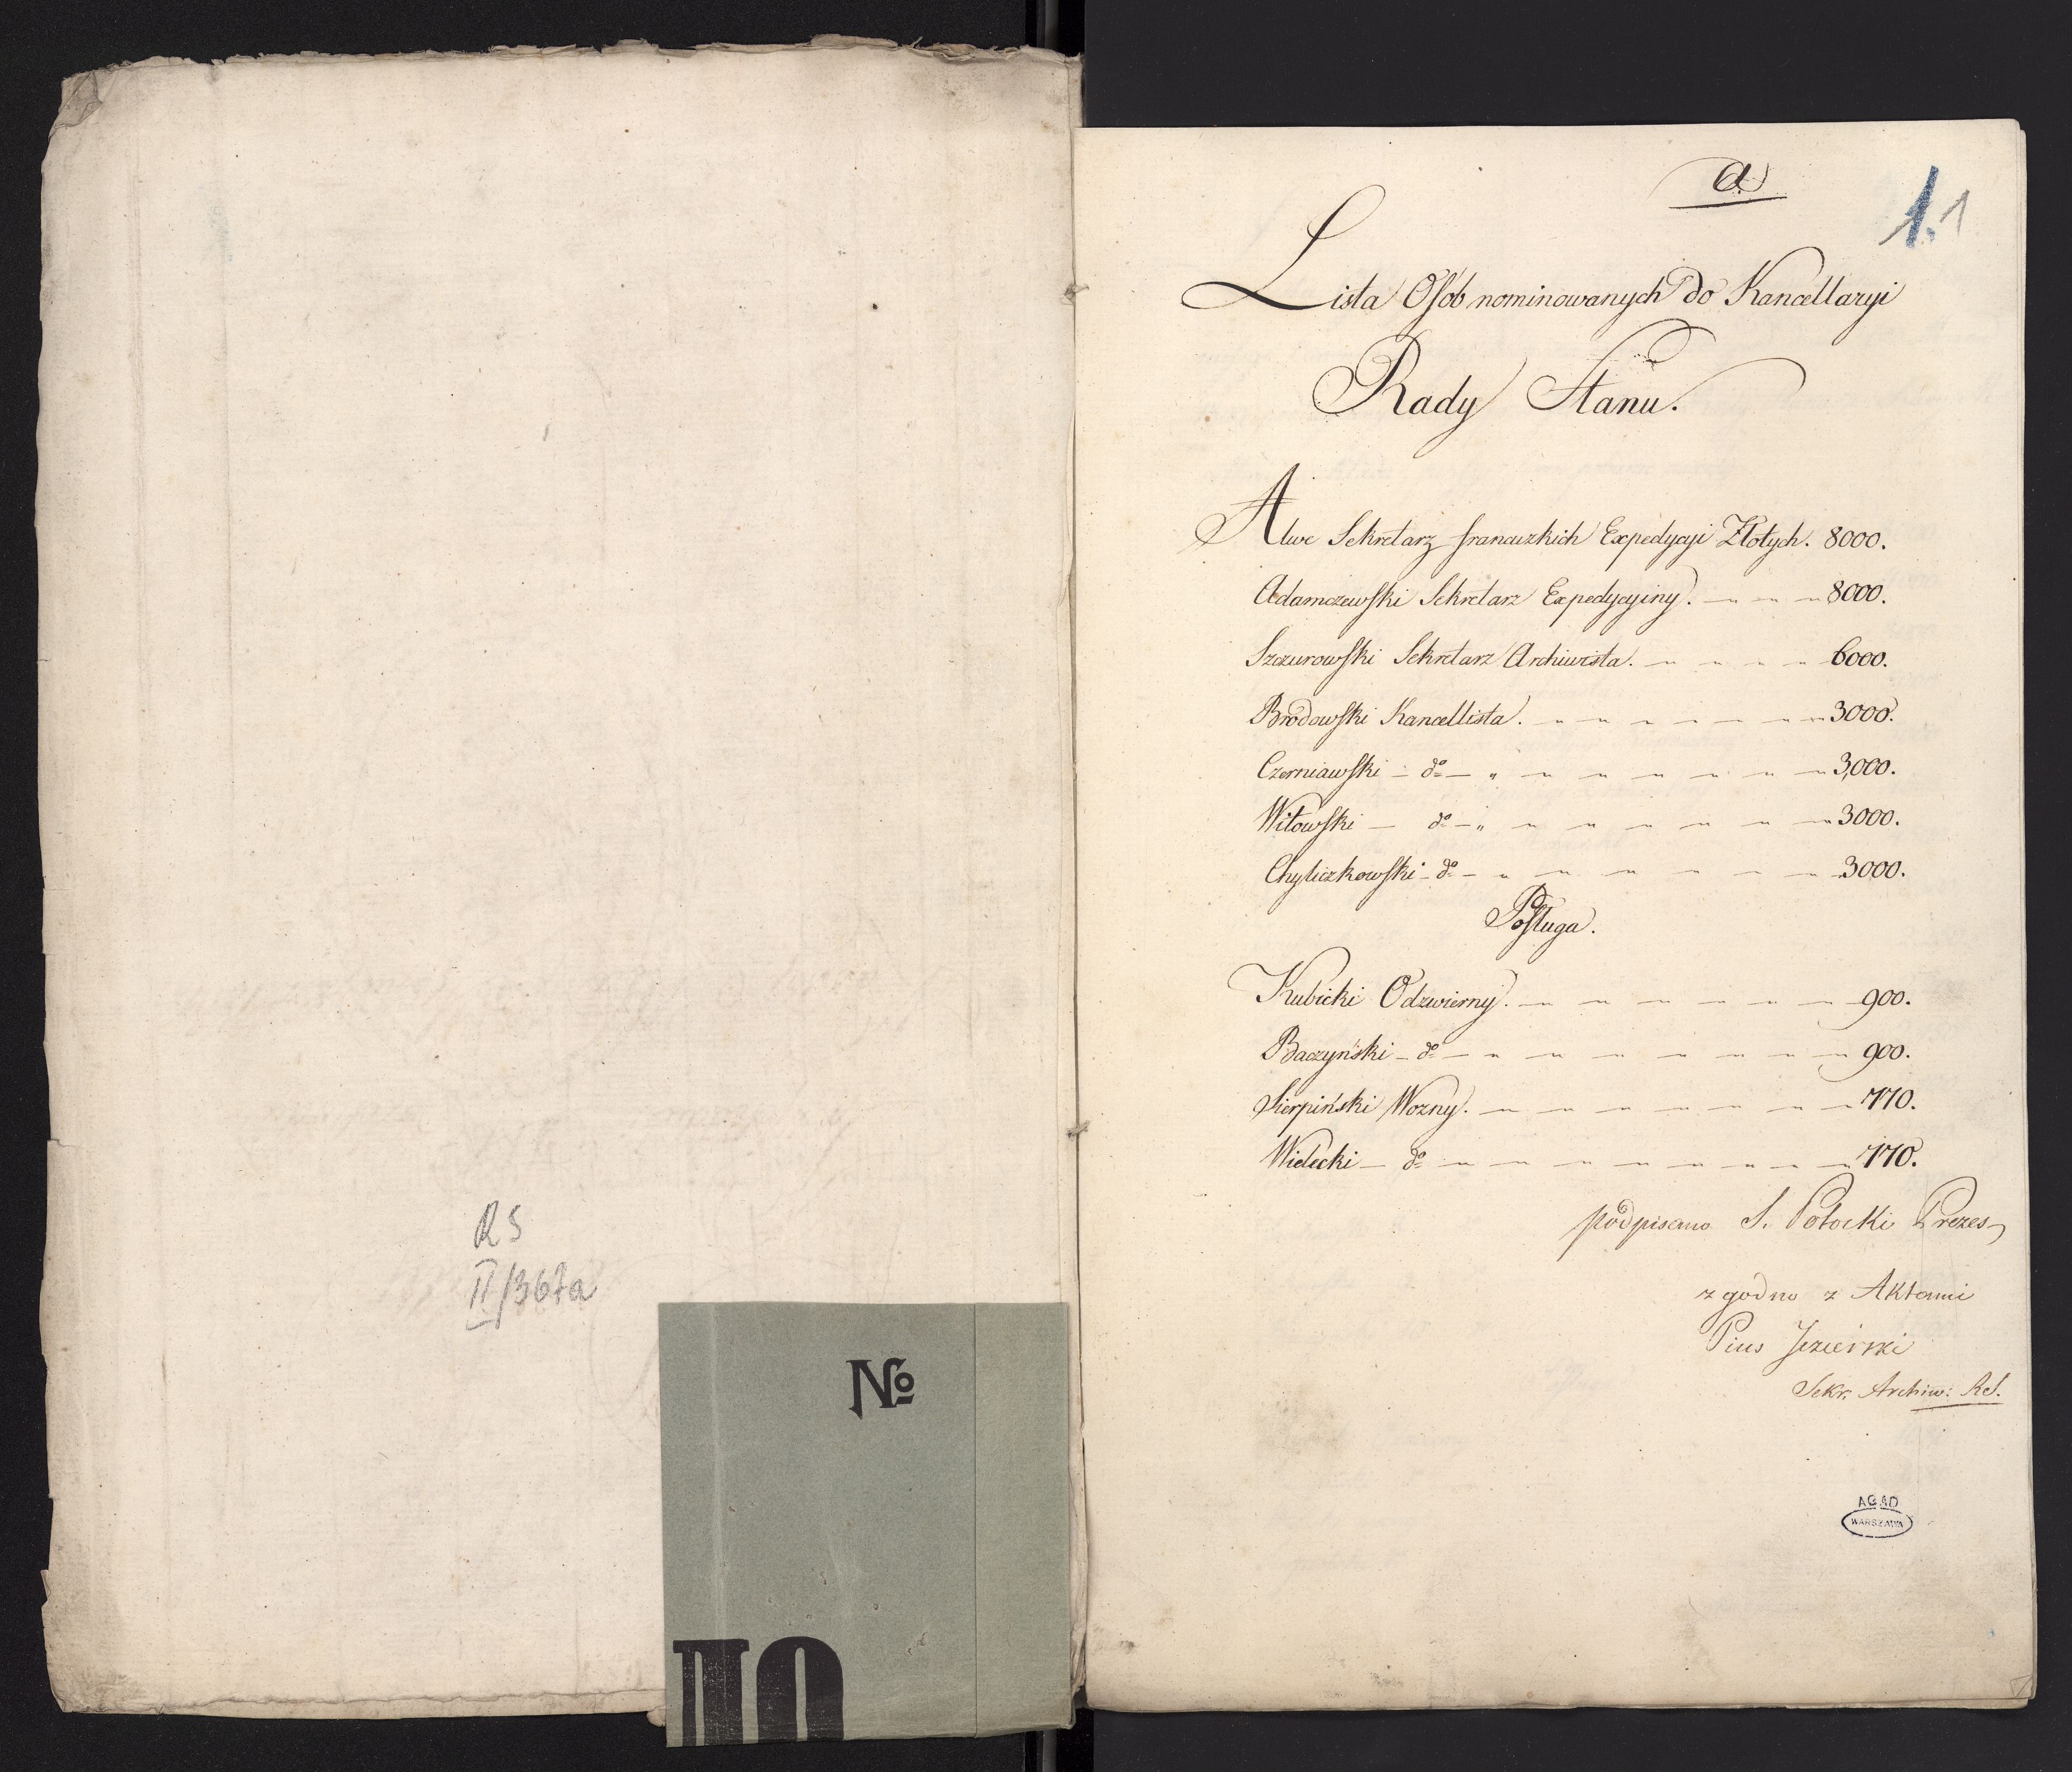 R S
II/367a
№
a
1. 1
Lista Osób nominowanych do Kancellaryi
Rady Stanu.
Alwe Sekretarz francuzkich Expedycyi Złotych. 8000.
Adamczewski Sekretarz Expedycyiny. 8000.
Szczurowski Sekretarz Archiwista. 6000.
Brodowski Kancellista. 3000.
Czerniawski – do – 3,000.
Witowski – do – 3000.
Chyliczkowski – do – 3000.
Posługa.
Kubicki Odzwierny. 900.
Baczyński – do – 900.
Sierpiński Wozny. 770.
Wielecki – do 770.
podpisano S. Potocki Prezes
zgodno z Aktami
Pius Jezierski
Sekr. Archiw: RS.
AGAD
WARSZAWA